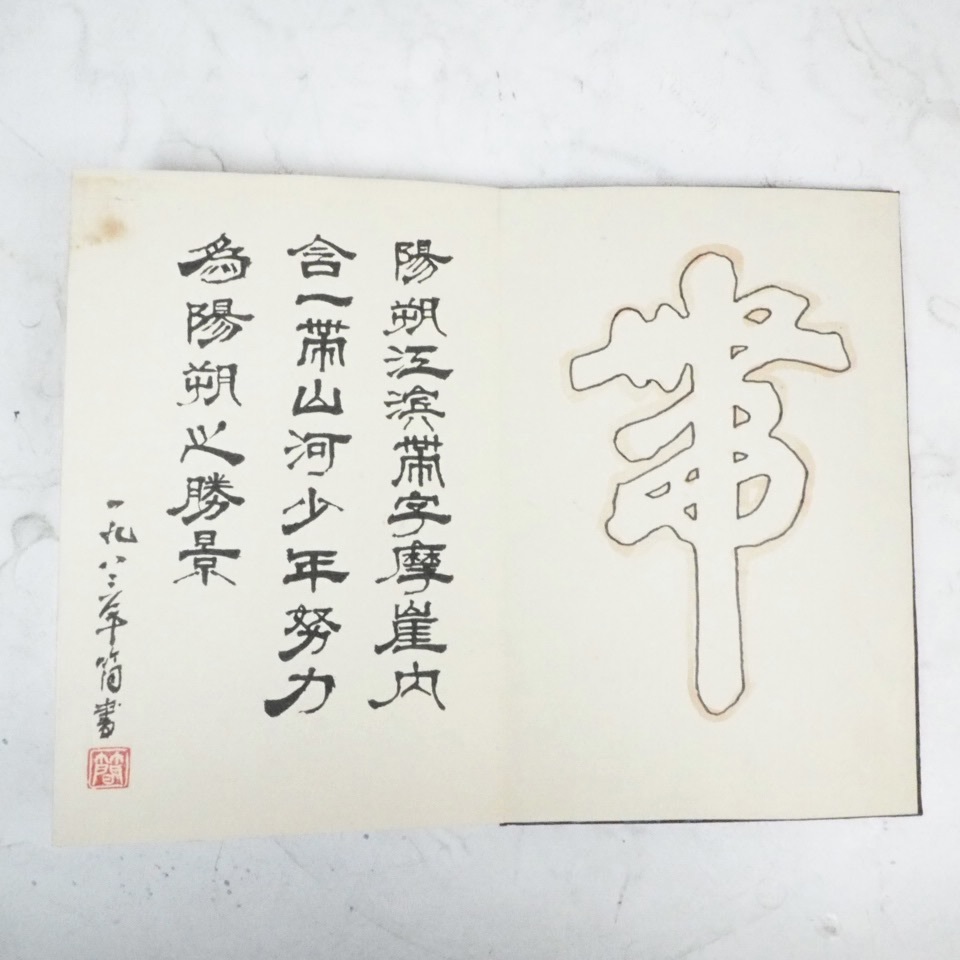 帶
陽朔江滨帶字摩崖内
含一帶山河少年努力
為陽朔之勝景
一九八二年簡書
簡